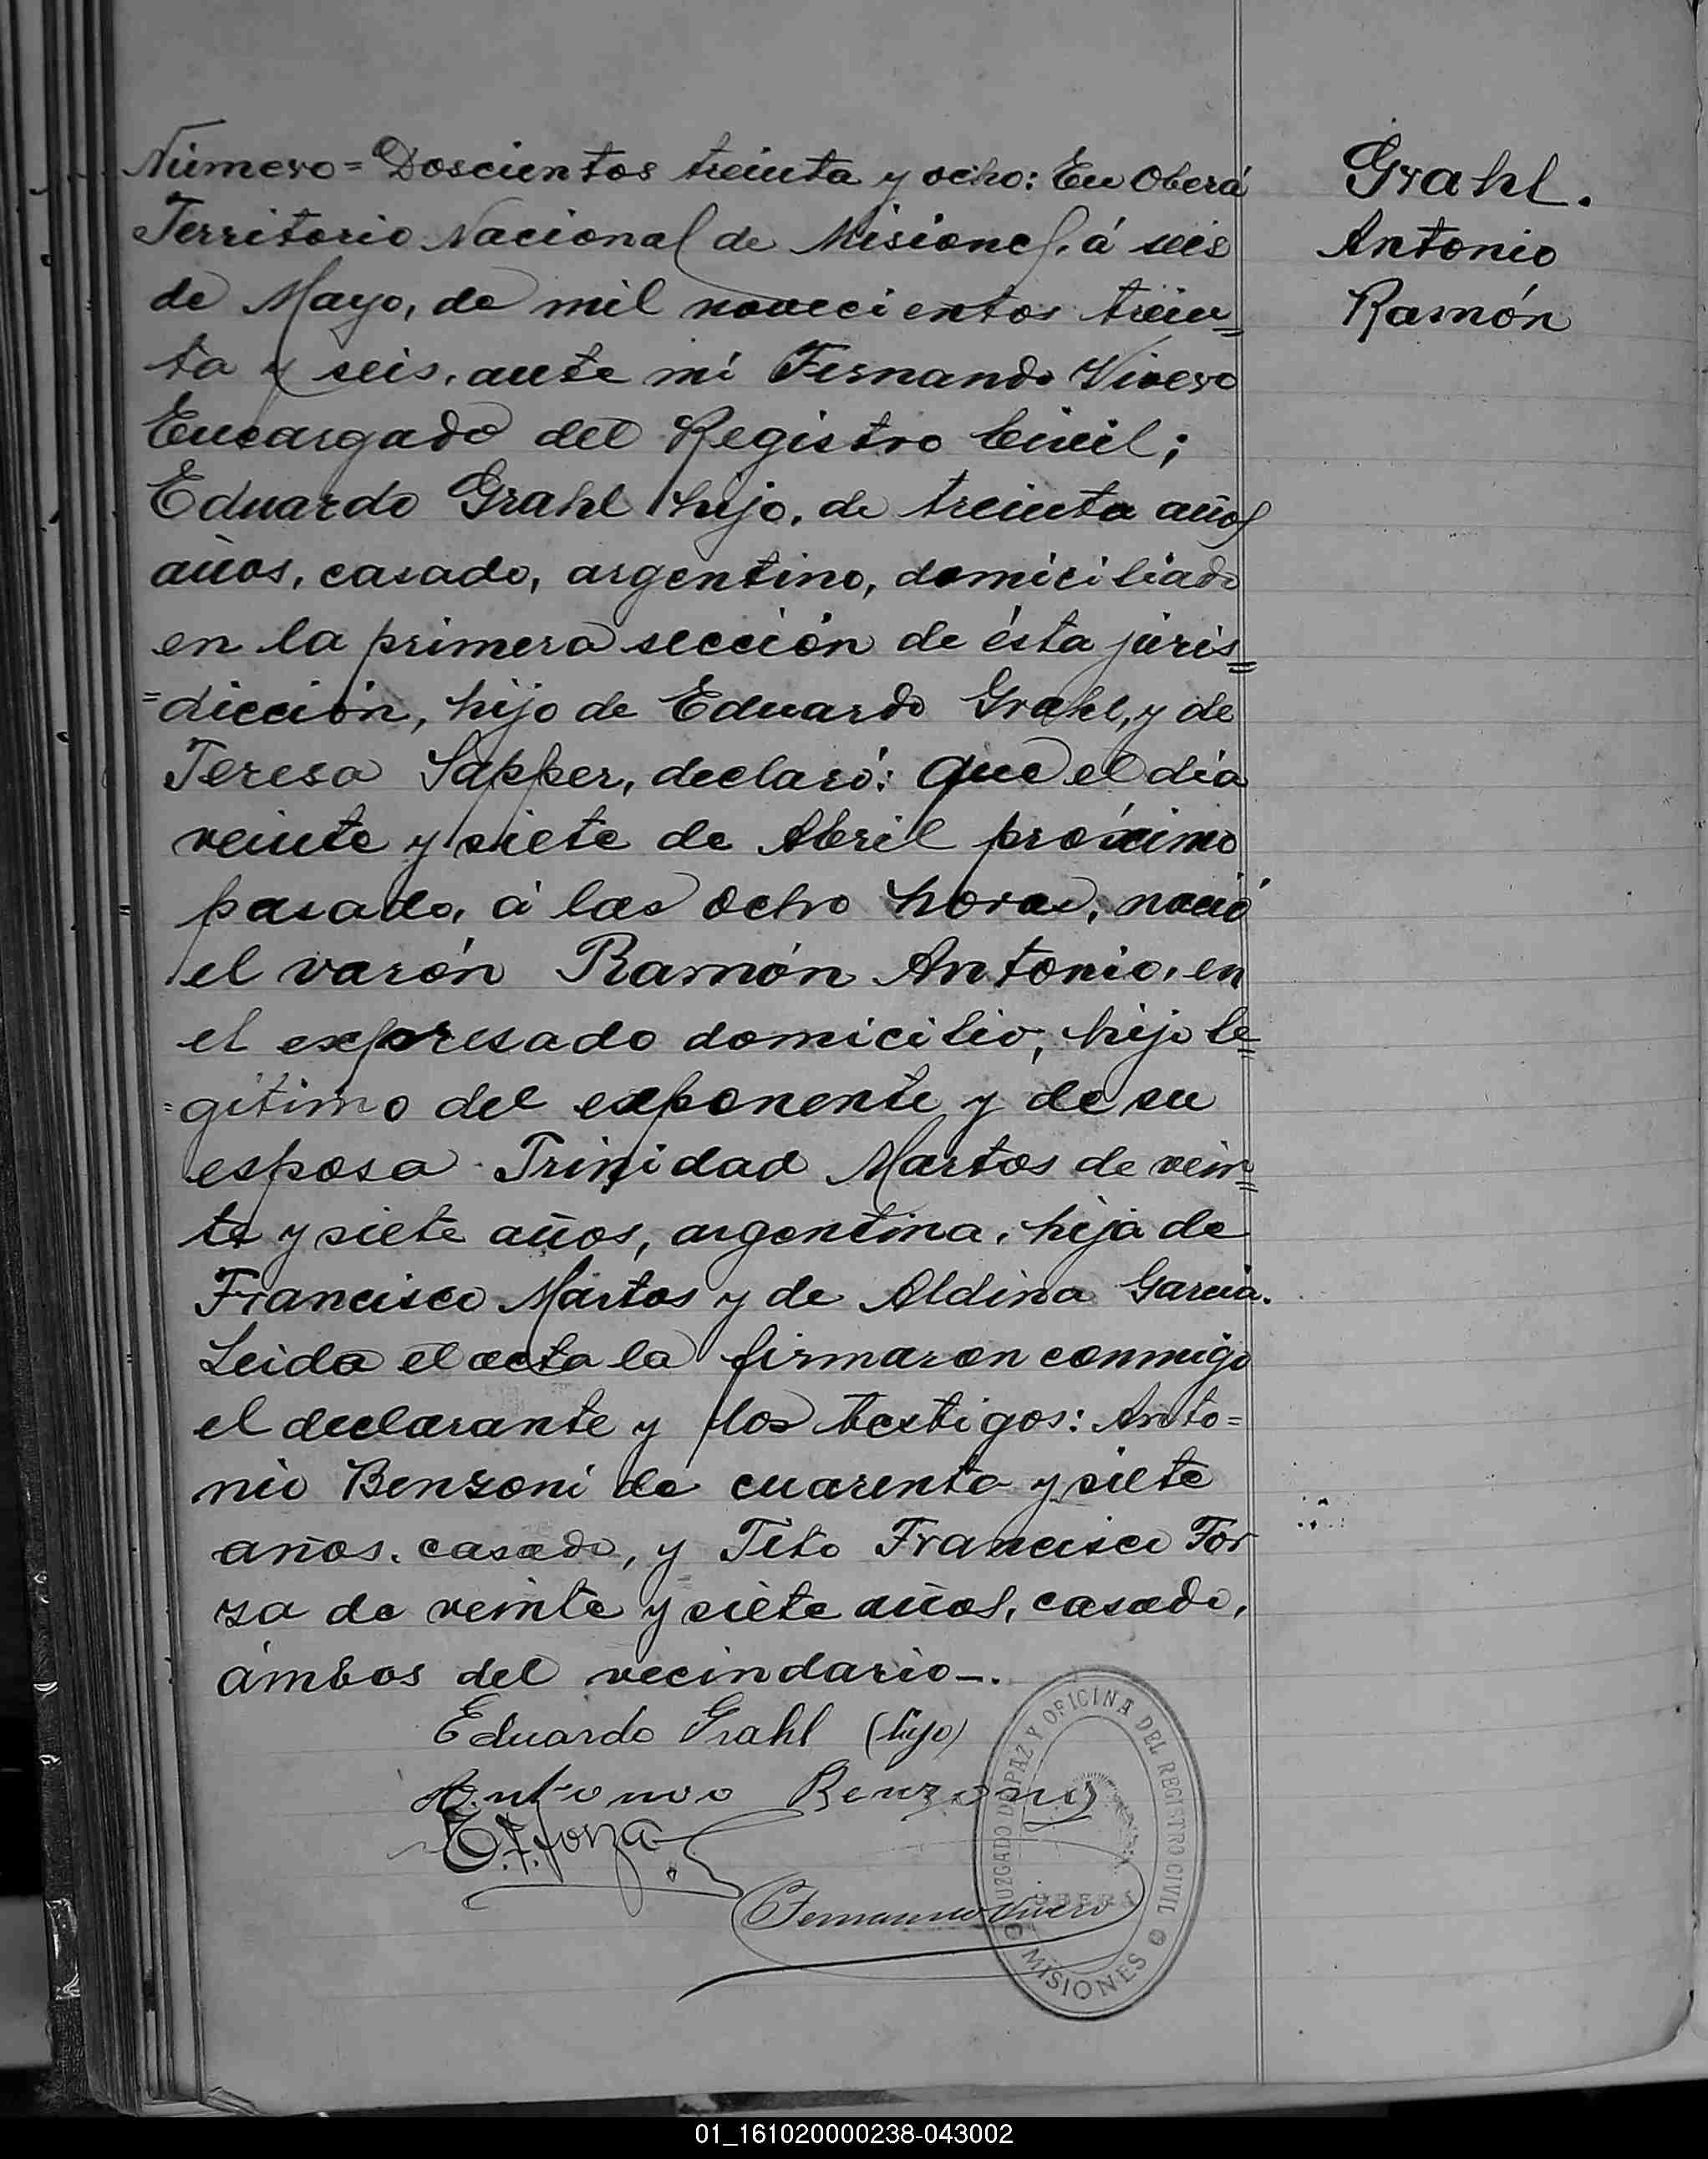 Número = Doscientos treinta y ocho: En Oberá
Territorio Nacional de Misiones, á seis
de Mayo, de mil novecientos trein=
ta y seis, ante mi Fernando Vivero
Encargado del Registro Civil;
Eduardo Grahl hijo, de treinta años
años, casado, argentino, domiciliado
en la primera sección de ésta juris=
=dicción, hijo de Eduardo Grahl, y de
Teresa Sapper, declaró: Que el día
veinte y siete de Abril próximo
pasado, á las ocho horas, nació
el varón Ramón Antonio, en
el expresado domicilio, hijo le=
=gítimo del exponente y de su
esposa Trinidad Martos de vein=
te y siete años, argentina, hija de
Francisco Martos y de Aldina García.
Leida el acta la firmaron conmigo
el declarante y los testigos: Anto=
nio Benzoni de cuarenta y siete
años, casado, y Tito Francisco For
za de veinte y siete años, casado,
ámbos del vecindario-.
Eduardo Grahl (hijo)
Antonio Benzoni
T. F. Forza
Fernando Vivero
JUZGADO DE PAZ Y OFICINA DEL REGISTRO CIVIL
OBERÁ
MISIONES
Grahl.
Antonio
Ramón
01_161020000238-043002